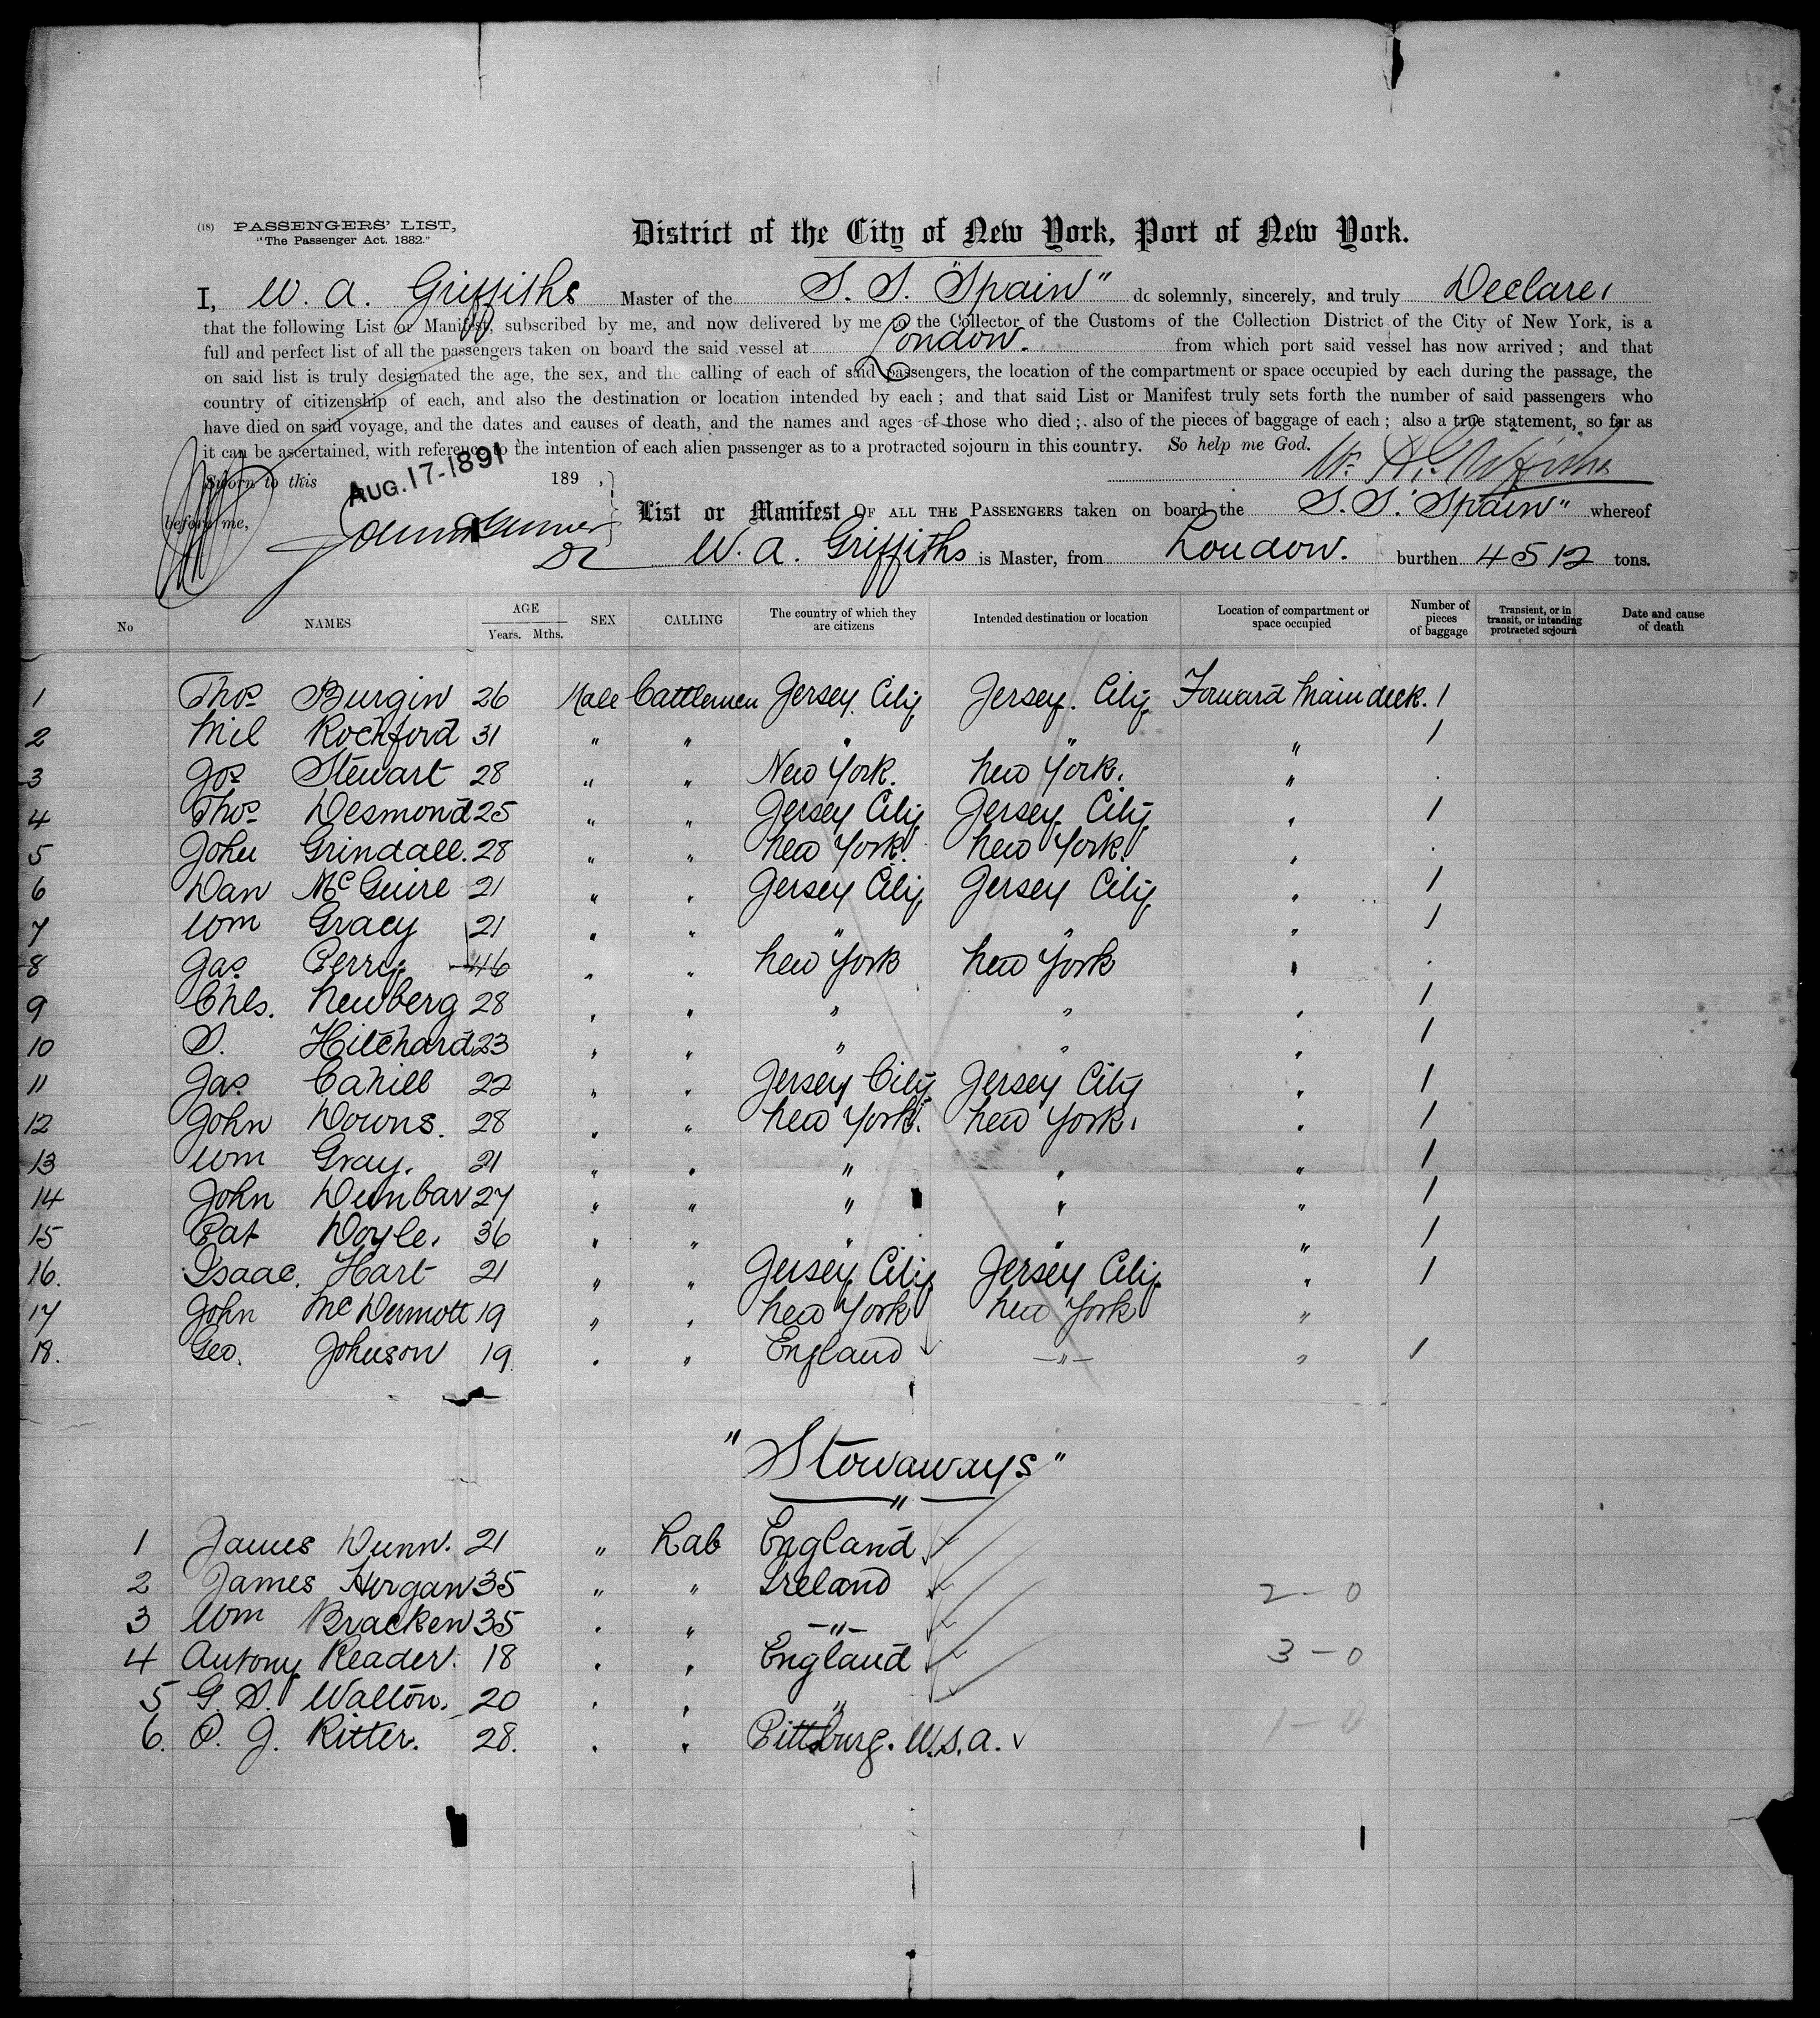 (18) PASSENGERS' LIST,
"The Passenger Act. 1882."
District of the City of New York, Port of New York.
I, W. A. Griffiths Master of the S. S. "Spain" do solemnly, sincerely, and truly Declare,
that the following List or Manifest, subscribed by me, and now delivered by me to the Collector of the Customs of the Collection District of the City of New York, is a
full and perfect list of all the passengers taken on board the said vessel at London. from which port said vessel has now arrived; and that
on said list is truly designated the age, the sex, and the calling of each of said passengers, the location of the compartment or space occupied by each during the passage, the
country of citizenship of each, and also the destination or location intended by each; and that said List or Manifest truly sets forth the number of said passengers who
have died on said voyage, and the dates and causes of death, and the names and ages of those who died; also of the pieces of baggage of each; also a true statement, so far as
it can be ascertained, with reference to the intention of each alien passenger as to a protracted sojourn in this country. So help me God.
Sworn to this AUG. 17-1891 189 ,
W. A. Griffiths
before me,
List or Manifest OF ALL THE PASSENGERS taken on board the S.S. "Spain" whereof
W. A. Griffiths is Master, from London. burthen 4512 tons.
No NAMES AGE Years. Mths. SEX CALLING The country of which they are citizens Intended destination or location Location of compartment or space occupied Number of pieces of baggage Transient, or in transit, or intending protracted sojourn Date and cause of death
1 Thos Burgin 26 Male Cattlemen Jersey City Jersey City Forward Main deck. 1
2 Mil Rochford 31 " " " " " 1
3 Jos Stewart 28 " " New York. New York. "
4 Thos Desmond 25 " " Jersey City Jersey City " 1
5 John Grindall. 28 " " New York. New York. "
6 Dan McGuire 21 " " Jersey City Jersey City " 1
7 Wm Gracy 21 " " " " " 1
8 Jas Perry 46 " " New York New York "
9 Chls. Newberg 28 " " " " " 1
10 S. Hilchard 23 " " " " " 1
11 Jas. Cahill 22 " " Jersey City Jersey City " 1
12 John Downs. 28 " " New York. New York. " 1
13 Wm Gray. 21 " " " " " 1
14 John Dunbar 27 " " " " " 1
15 Pat Doyle. 36 " " " " " 1
16. Isaac. Hart 21 " " Jersey City Jersey City " 1
17 John McDermott 19 " " New York New York "
18. Geo. Johnson 19. " " England —"— " 1
"Stowaways"
"
1 James Dunn. 21 " Lab England
2 James Horgan 35 " " Ireland 2 - 0
3 Wm Bracken 35 " " —"—
4 Antony Reader. 18 " " England 3 - 0
5 G. S. Walton. 20 " " "
6. P. J. Ritter. 28. " " Pittsburg. U.S.A. 1 - 0